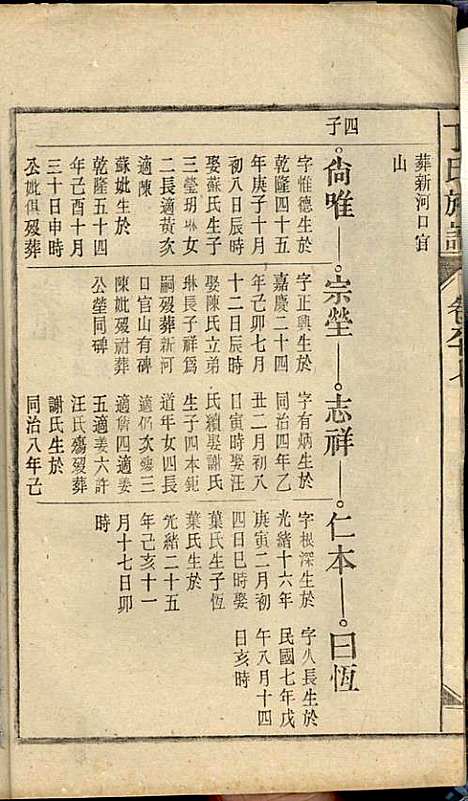 葬新河口官
山
四子
尙唯
宗塋
志祥
仁本
日恆
字惟德生於
乾隆四十五
年庚子十月
初八日辰時
娶蘇氏生子
三塋玥琳女
二長適黃次
適陳
蘇妣生於
乾隆五十四
年己酉十月
三十日申時
公妣俱歿葬
字正興生於
嘉慶二十四
年己卯七月
十二日辰時
娶陳氏立弟
琳長子祥爲
嗣歿葬新河
口官山有碑
陳妣歿祔葬
公塋同碑
字有炳生於
同治四年乙
丑二月初八
日寅時娶汪
氏續娶謝氏
生子四本鉅
道年女四長
適仍次殤三
適詹四適姜
五適姜六許
汪氏殤歿葬
謝氏生於
同治八年己
字根深生於
光緒十六年
庚寅二月初
四日巳時娶
葉氏生子恆
葉氏生於
光緒二十五
年己亥十一
月十七日卯
時
字人長生於
民國七年戊
午八月十四
日亥時